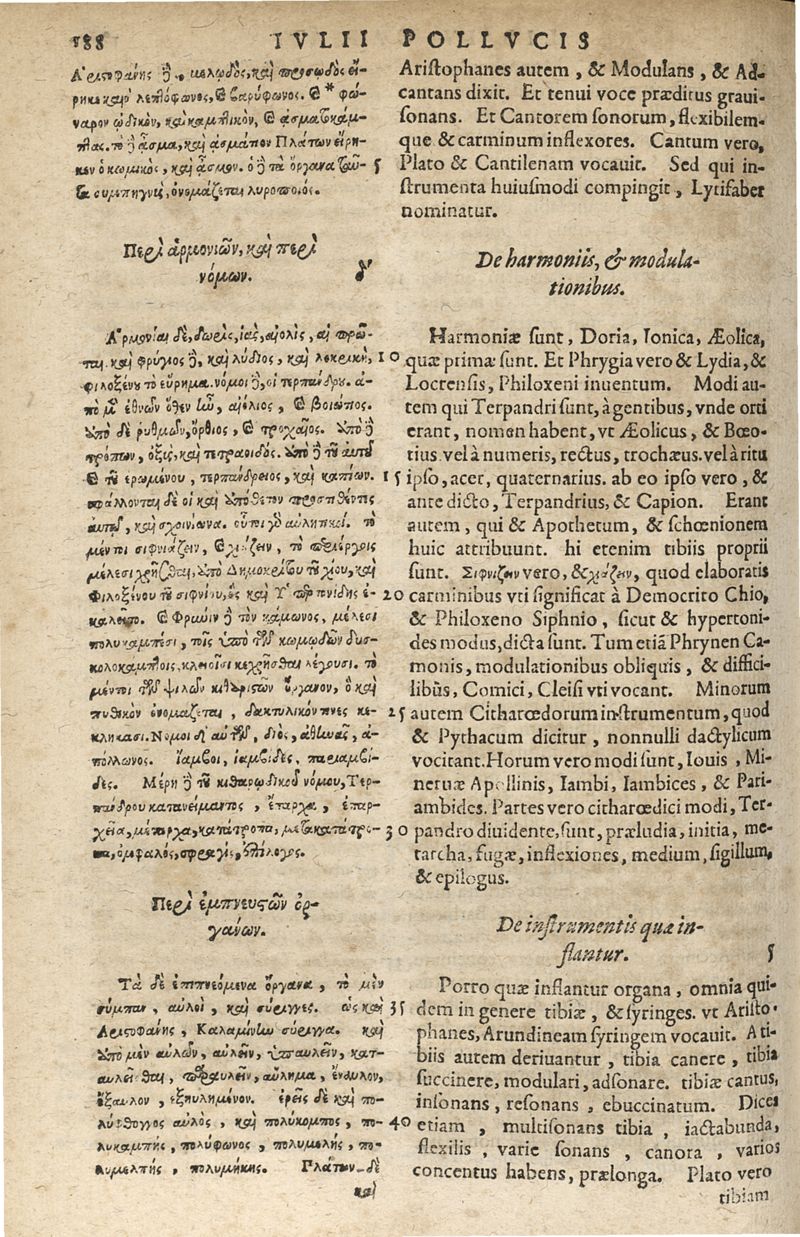 188 IVLII POLLVCIS
Ἀριστοφάνης ἢ, μελῳδὸς, καὶ προσῳδὸς εἴ-
ρηκε καὶ λεπτόφωνος, & βαρύφωνος. & * φώ-
ναρον ᾠδικὸν, καὶ καμπτικὸν, & ᾀσματοκάμ-
πτας. τὸ ᾆσμα, καὶ ᾀσμάτιον Πλάτων εἴρη-
κεν ὁ κωμικὸς, καὶ ᾆσμον. ὁ τὰ ὄργανα ταῦ- 5
τα συμπηγνὺς, ὀνομάζεται λυροποιός.
Περὶ ἁρμονιῶν, καὶ περὶ
νόμων.
Ἁρμονίαι δὲ, δωρὶς, ἰὰς, αἰολὶς, αἱ πρῶ-
ται. καὶ φρύγιος δὲ, καὶ λύδιος, καὶ λοκρικὴ, 10
φιλοξένου τὸ εὕρημα. νόμοι δὲ, οἱ τερπάνδρου. ἀ-
πὸ μὲν ἐθνῶν ὅθεν ἦν, αἰόλιος, & βοιώτιος.
ἀπὸ δὲ ῥυθμῶν, ὄρθιος, & τροχαῖος. ἀπὸ δὲ
τρόπων, ὀξὺς, καὶ τετραοιδός. ἀπὸ δὲ τοῦ αὐτοῦ
& τοῦ ἐρωμένου, τερπάνδρειος, καὶ καπίων. 15
σφάλλονται δὲ οἱ καὶ ἀπόθετον προστιθέντες
αὐτοῦ, καὶ σχοινίωνα. οὗτοι γὰρ αὐλητικοί. τὸ
μέντοι σιφνιάζειν, & χιάζειν, τὸ περιέργοις
μέλεσι χρῆσθαι, ἀπὸ Δημοκρίτου τοῦ χίου, καὶ
Φιλοξένου τοῦ σιφνίου, ὃς καὶ ὑπερτονίδης ἐ- 20
καλεῖτο. & Φρῦνιν δὲ τὸν κάμωνος, μέλεσι
πολυκαμπέσι, τοῖς ὑπὸ τῶν κωμῳδῶν δυσ-
κολοκάμπτοις, κλειοῖσι κεχρῆσθαι λέγουσι. τὸ
μέντοι τῶν ψιλῶν κιθαριστῶν ὄργανον, ὃ καὶ
πυθικὸν ὀνομάζεται, δακτυλικόν τινες κε- 25
κλήκασι. Νόμοι δ' αὐτῶν, διὸς, ἀθηνᾶς, ἀ-
πόλλωνος. ἴαμβοι, ἰαμβίδες, παριαμβί-
δες. Μέρη δὲ τοῦ κιθαρῳδικοῦ νόμου, Τερ-
πάνδρου κατανείμαντος, ἔπαρχα, ἐπαρ-
χεία, μέταρχα, κατάτροπα, μετακατάτρο- 30
πα, ὀμφαλὸς, σφραγὶς, ἐπίλογος.
Περὶ ἐμπνευστῶν ὀρ-
γάνων.
Τὰ δὲ ἐμπνεόμενα ὄργανα, τὸ μὲν
σύμπαν, αὐλοὶ, καὶ σύριγγες. ὡς καὶ 35
Ἀριστοφάνης, Καλαμίνην σύριγγα. καὶ
ἀπὸ μὲν αὐλῶν, αὐλεῖν, ὑπαυλεῖν, κατ-
αυλεῖσθαι, προσαυλεῖν, αὔλημα, ἔναυλον,
ἔξαυλον, ἐξηυλημένον. ἐρεῖς δὲ καὶ πο-
λύφθογγος αὐλὸς, καὶ πολύκομπος, πο- 40
λυκαμπὴς, πολύφωνος, πολυμελὴς, πο-
λυμελπὴς, πολυμήκης. Πλάτων δὲ
καὶ
Aristophanes autem, & Modulans, & Ad-
cantans dixit. Et tenui voce præditus graui-
sonans. Et Cantorem sonorum, flexibilem-
que & carminum inflexores. Cantum vero,
Plato & Cantilenam vocauit. Sed qui in-
strumenta huiusmodi compingit, Lyrifaber
nominatur.
De harmoniis, & modula-
tionibus.
Harmoniæ sunt, Doria, Ionica, Æolica,
quæ primæ sunt. Et Phrygia vero & Lydia, &
Locrensis, Philoxeni inuentum. Modi au-
tem qui Terpandri sunt, à gentibus, vnde orti
erant, nomen habent, vt Æolicus, & Bœo-
tius. vel à numeris, rectus, trochæus. vel à ritu
ipso, acer, quaternarius. ab eo ipso vero, &
ante dicto, Terpandrius, & Capion. Erant
autem, qui & Apothetum, & schœnionem
huic attribuunt. hi etenim tibiis proprii
sunt. Σιφνιζειν vero, & χιάζειν, quod elaboratis
carminibus vti significat à Democrito Chio,
& Philoxeno Siphnio, sicut & hypertoni-
des modus, dicta sunt. Tum etiã Phrynen Ca-
monis, modulationibus obliquis, & diffici-
libus, Comici, Cleisi vti vocant. Minorum
autem Citharœdorum instrumentum, quod
& Pythacum dicitur, nonnulli dactylicum
vocitant. Horum vero modi sunt, Iouis, Mi-
neruæ Apollinis, Iambi, Iambices, & Pari-
ambides. Partes vero citharœdici modi, Ter-
pandro diuidente, sunt, præludia, initia, me-
tarcha, fugæ, inflexiones, medium, sigillum,
& epilogus.
De instrumentis quæ in-
flantur. 5
Porro quæ inflantur organa, omnia qui-
dem in genere tibiæ, & syringes. vt Aristo-
phanes, Arundineam syringem vocauit. A ti-
biis autem deriuantur, tibia canere, tibia
succinere, modulari, adsonare. tibiæ cantus,
insonans, resonans, ebuccinatum. Dices
etiam, multisonans tibia, iactabunda,
flexilis, varie sonans, canora, varios
concentus habens, prælonga. Plato vero
tibiam